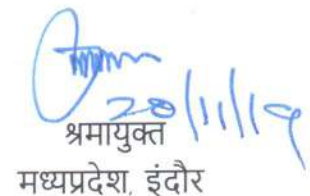 20/11/19
श्रमायुक्त
मध्यप्रदेश, इंदौर